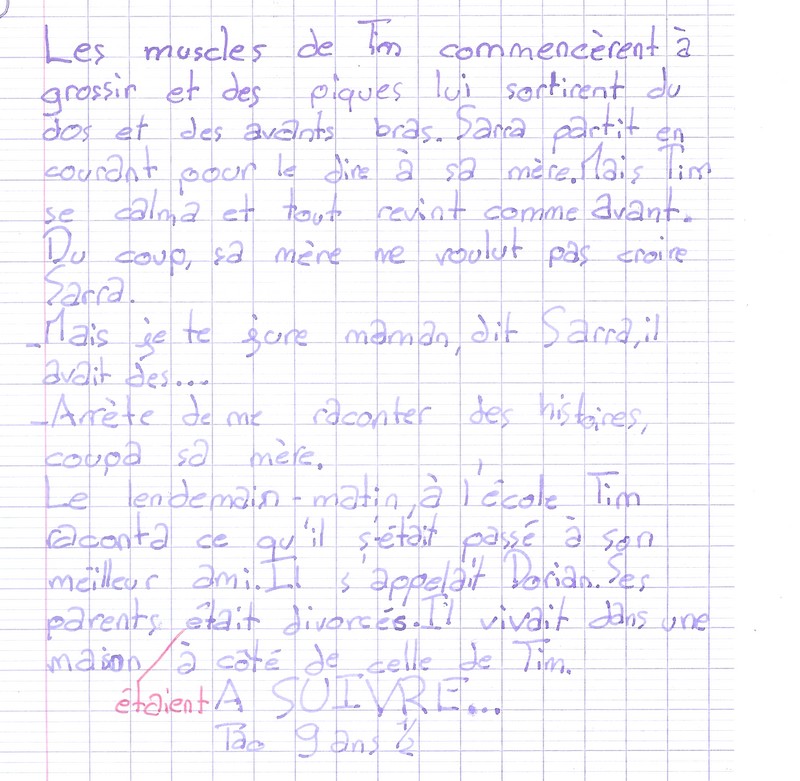 Les muscles de Tim commencèrent à
grossir et des piques lui sortirent du
dos et des avants bras. Sarra partit en
courant pour le dire à sa mère. Mais Tim
se calma et tout revint comme avant.
Du coup, sa mère ne voulut pas croire
Sarra.
-Mais je te jure maman, dit Sarra, il
avait des...
-Arrète de me raconter des histoires,
coupa sa mère.
Le lendemain-matin, à l'école Tim
raconta ce qu'il s'était passé à son
meilleur ami. Il s'appelait Dorian. Ses
parents était divorcés. Il vivait dans une
maison à côté de celle de Tim.
étaient
A SUIVRE...
Tao 9 ans 1/2